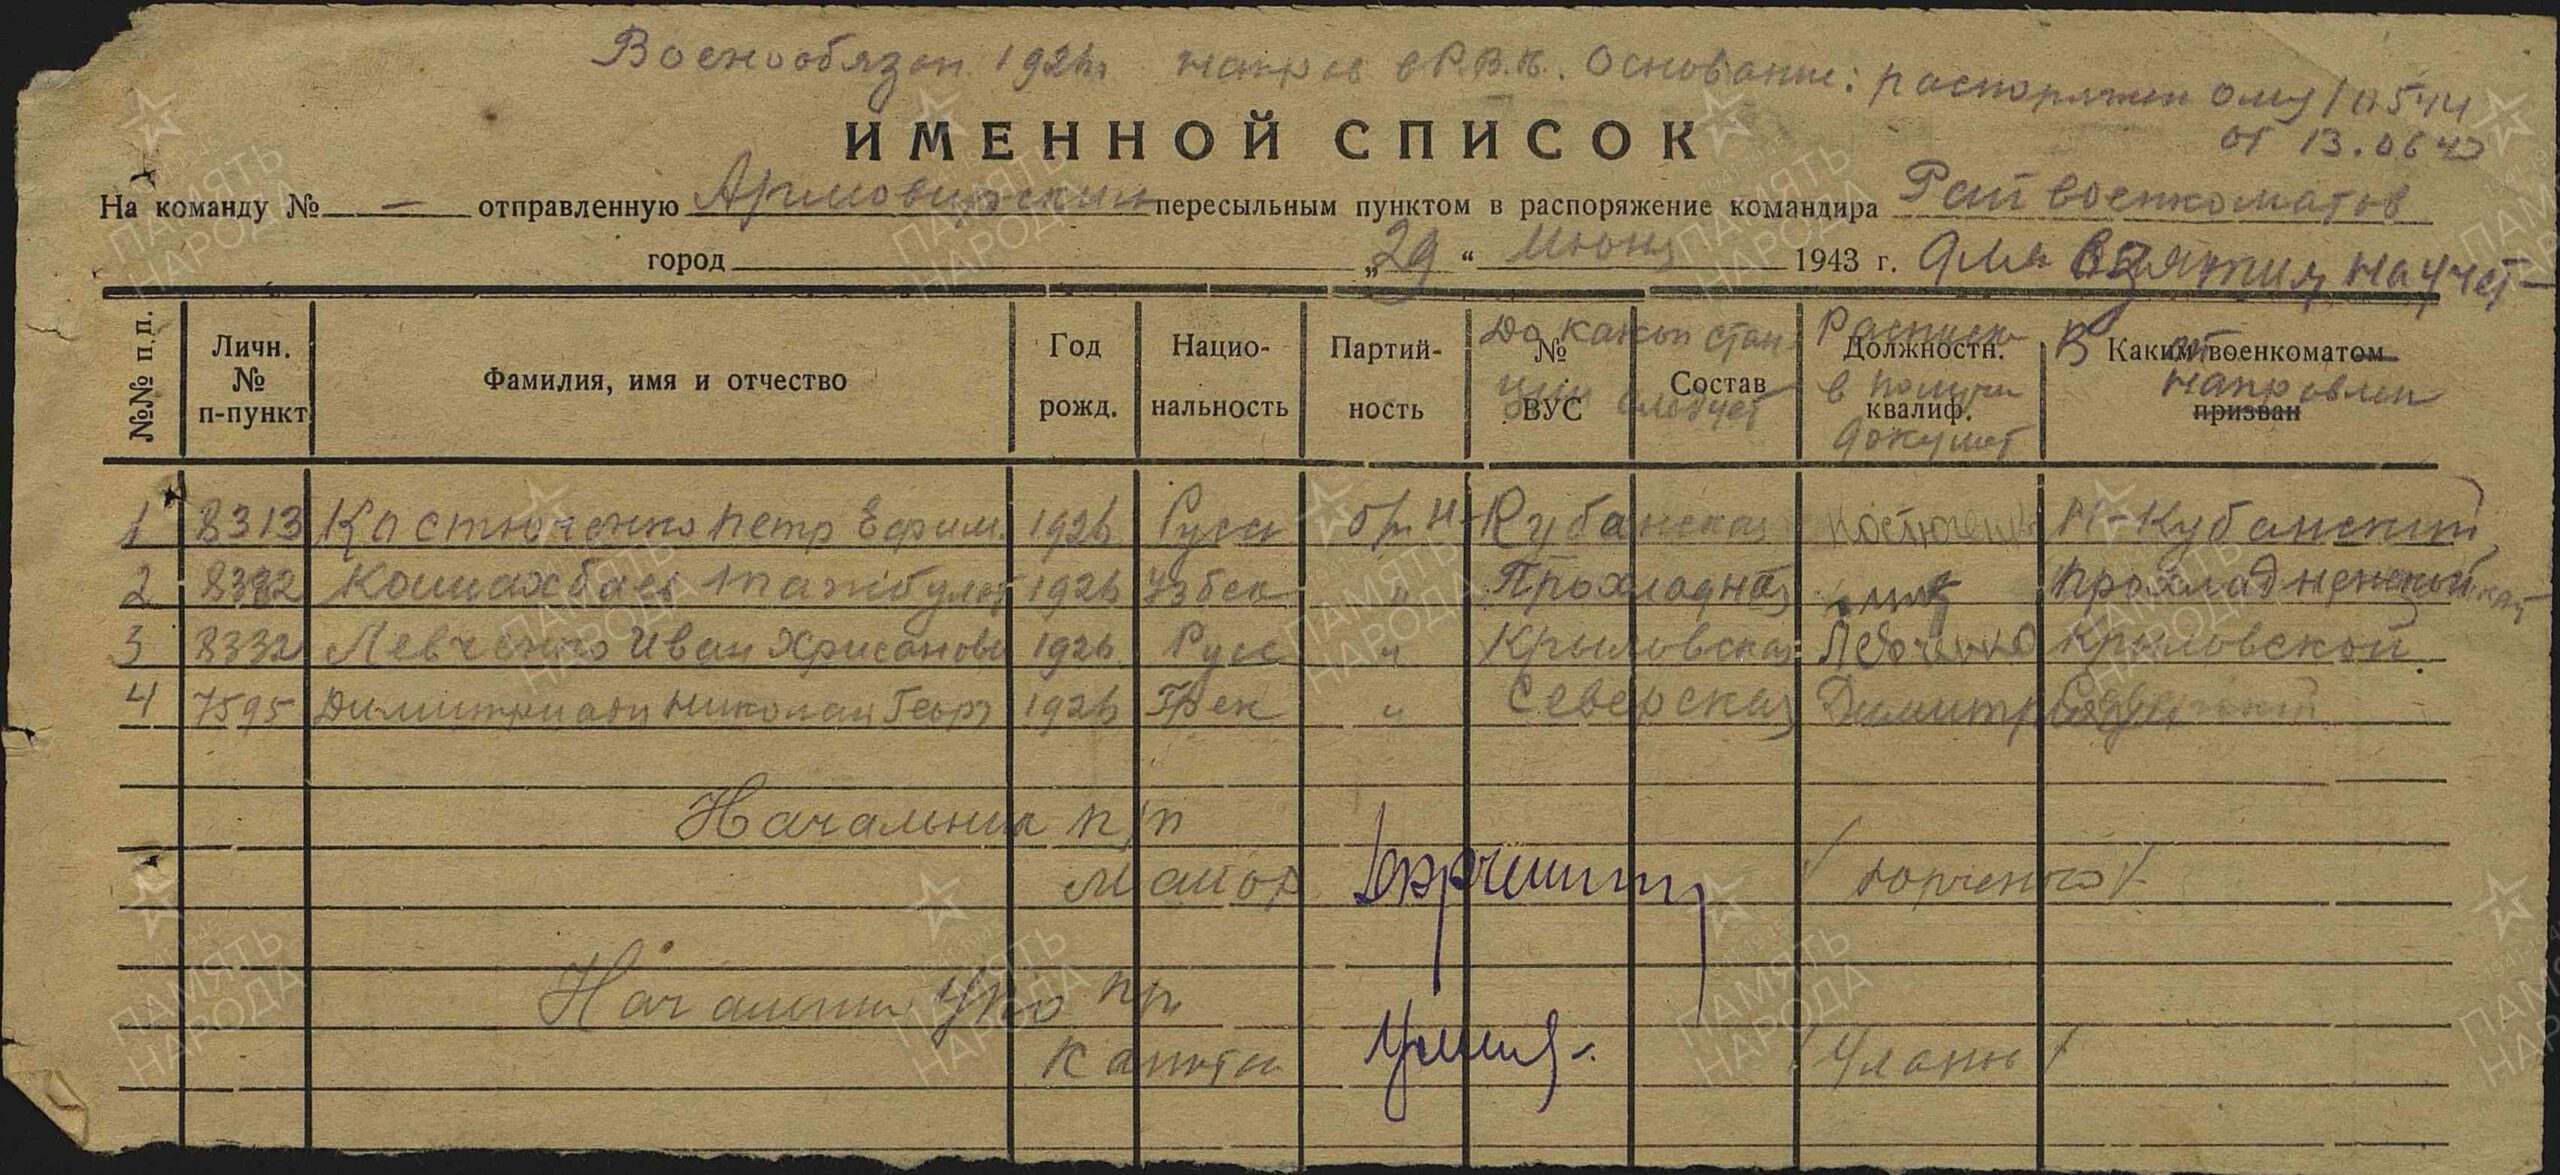 Военообязан. 1926г направ в Р.В.К. Основание: распоряжен ому 10544
от 13.06.43
ИМЕННОЙ СПИСОК
На команду № — отправленную Армовирским пересыльным пунктом в распоряжение командира Рай военкоматов
город „29“ Июня 1943 г. для взятия на учет
№№ п.п. Личн. № п-пункт Фамилия, имя и отчество Год рожд. Нацио-нальность Партий-ность № ВУС Состав Должностн. квалиф. Каким военкоматом призван
До какой стан. следует Расписка в получ докумет В направлен
1 8313 Костюченко Петр Ефим. 1926 Русск б/п Н-Кубанская Костюченко Н-Кубанский
2 8332 1926 Узбек " Прохладная Прохладненский
3 8332 Левченко Иван Хрисанови 1926 Русс " Крыловская Левченко Крыловской
4 7595 Димитриади Николай Георг 1926 Грек " Северская Димитриади
Начальник п/п
Майор /Юрченко/
Начальник УРО пп
Капитан
ПАМЯТЬ НАРОДА